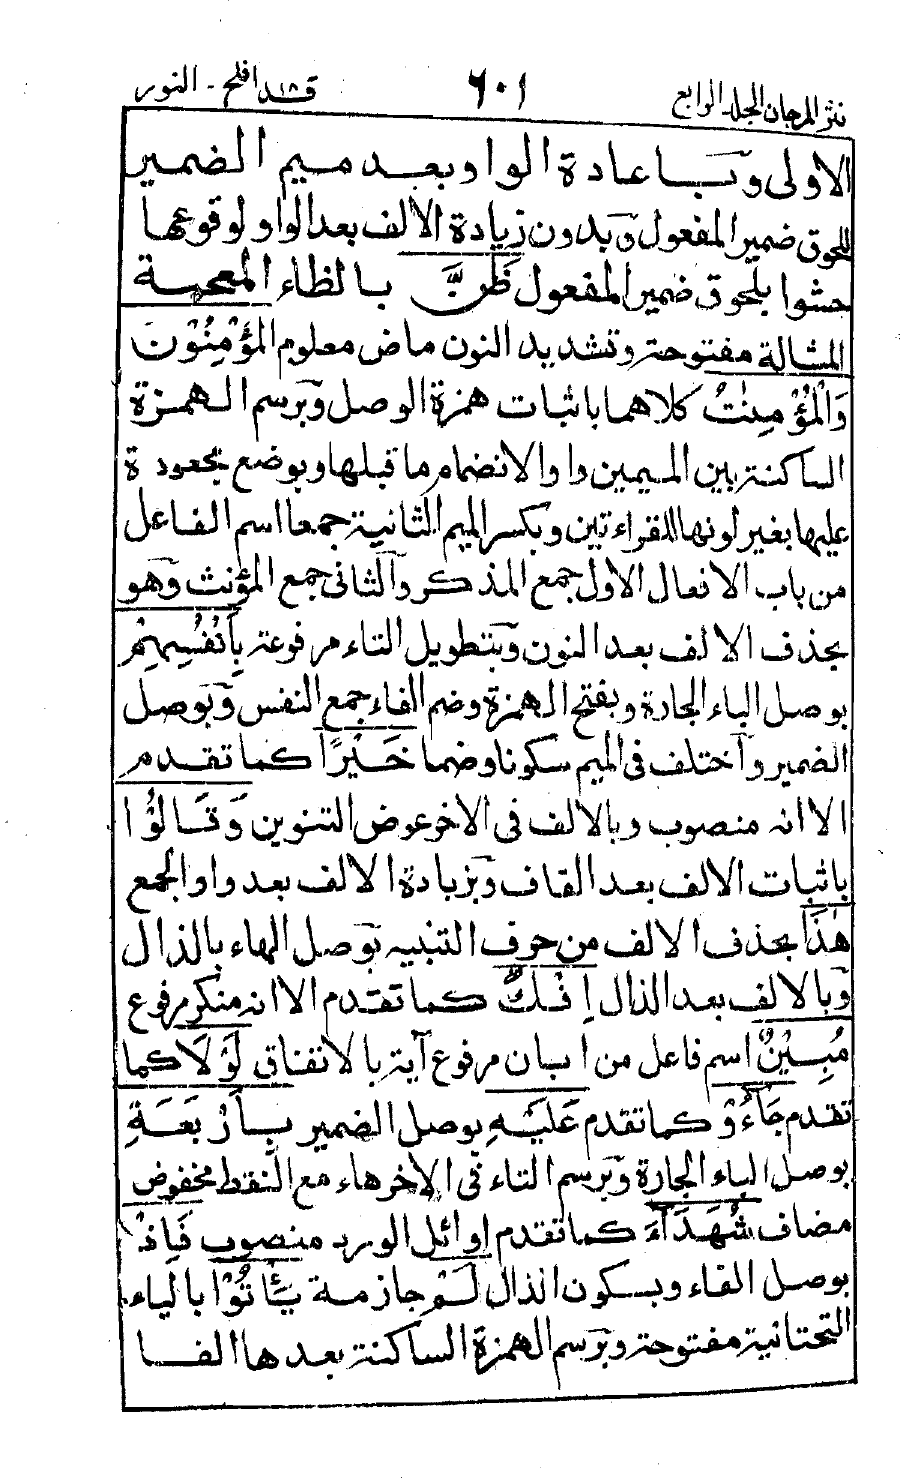 نثر المرجان المجلد الرابع ٦٠١ قد افلح ١٨ - النور
الاولى وَبَاعادة الواو بعد ميم الضمير
للحوق ضمير المفعول وَبدون زيادة الالف بعد الواو لوقوعها
حشوا بلحوق ضمير المفعول ظَنَّ بالظاء المعجمة
المشالة مفتوحة وتشديد النون ماض معلوم الْمُؤْمِنُوْنَ
وَالْمُؤْمِنٰتُ كلاهما باثبات همزة الوصل وَبرسم الهمزة
الساكنة بين الميمين واوا لانضمام ما قبلها وبوضع مجعودة
عليها بغير لونها للقراءتين وبكسر الميم الثانية جمعا اسم الفاعل
من باب الافعال الاول جمع المذكر والثانى جمع المؤنث وَهو
بحذف الالف بعد النون وَبتطويل التاء مرفوعة بِاَنْفُسِهِمْ
بوصل الباء الجارة وبفتح الهمزة وضم الفاء جمع النفس وَبوصل
الضمير وآختلف فى الميم سكونا وضما خَيْرًا كما تقدم
الا انه منصوب وبالالف فى الاخر عوض التنوين وَقَالُوْا
باثبات الالف بعد القاف وَبزيادة الالف بعد واو الجمع
هٰذَا بحذف الالف من حرف التنبيه بَوصل الهاء بالذال
وَبالالف بعد الذال اِفْكٌ كما تقدم الا انه منكر مرفوع
مُبِيْنٌ اسم فاعل من ابان مرفوع آية بالاتفاق لَوْلَا كما
تقدم جَاءُوْ كما تقدم عَلَيْهِ بوصل الضمير بِاَرْبَعَةِ
بوصل الباء الجارة وَبرسم التاء فى الاخر هاء مع النقط مخفوض
مضاف شُهَدَآءَ كما تقدم اوائل الورد منصوب فَاِذْ
بوصل الفاء وبسكون الذال لَمْ جازمة يَأْتُوْا بالياء
التحتانية مفتوحة وبرسم الهمزة الساكنة بعدها الفا